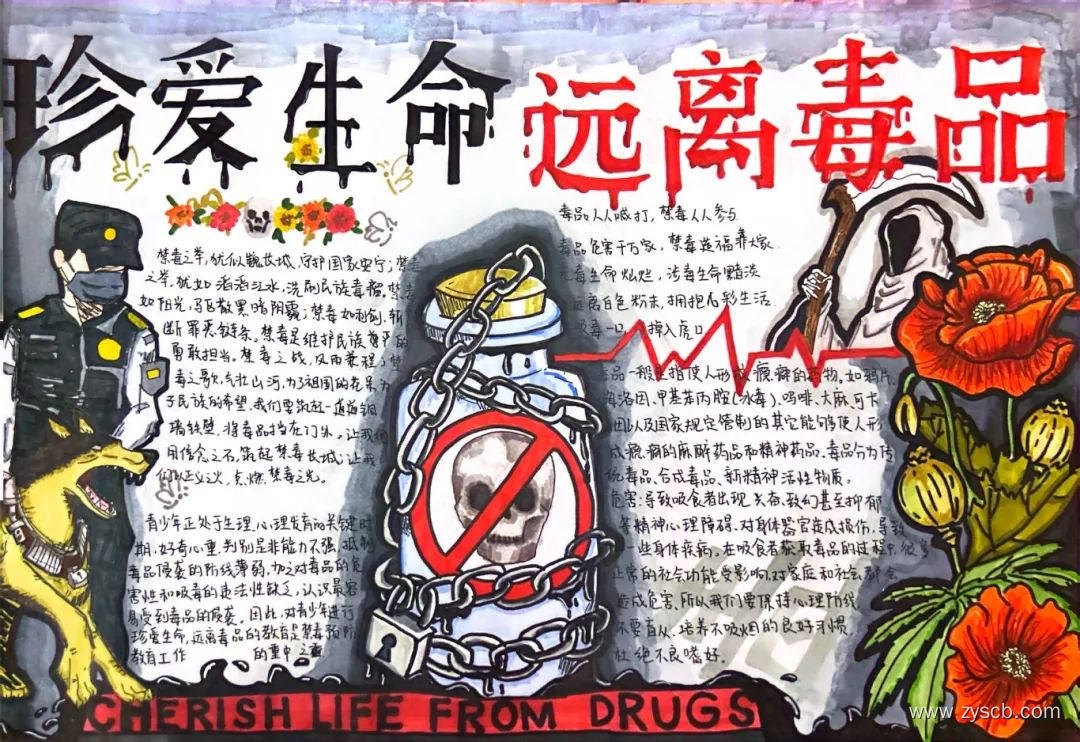 珍爱生命 远离毒品
禁毒之举,犹似巍峨长城,守护国家安宁;禁毒
之举,犹如滔滔江水,洗刷民族毒瘤。禁毒
如阳光,驱散黑暗阴霾;禁毒如利剑,斩
断罪恶链条。禁毒是维护民族尊严的
勇敢担当。禁毒之战,风雨兼程;禁
毒之歌,气壮山河,为了祖国的花朵,为
了民族的希望,我们要筑起一道道铜
墙铁壁,将毒品挡在门外,让我们
用信念之石,筑起禁毒长城;让我
们以正义之火,点燃禁毒之光。
青少年正处于生理、心理发育的关键时
期,好奇心重,判别是非能力不强,抵制
毒品侵袭的防线薄弱,加之对毒品的危
害性和吸毒的违法性缺乏认识,最容
易受到毒品的侵袭。因此,对青少年进行
珍爱生命,远离毒品的教育是禁毒预防
教育工作 的重中之重
毒品人人喊打,禁毒人人参与
毒品危害千万家,禁毒造福靠大家
无毒生命灿烂,涉毒生命黯淡
远离白色粉末,拥抱七彩生活
吸毒一口,掉入虎口
毒品一般是指使人形成瘾癖的药物。如鸦片、
海洛因、甲基苯丙胺(冰毒)、吗啡、大麻、可卡
因以及国家规定管制的其它能够使人形
成瘾癖的麻醉药品和精神药品。毒品分为传
统毒品、合成毒品、新精神活性物质。
危害:导致吸食者出现 我们甚至抑郁
等精神心理障碍、对身体器官造成损伤、导致
一些身体疾病。在吸食者获取毒品的过程中,很多
正常的社会功能受影响,对家庭和社会都会
造成危害,所以我们要保持心理防线,
不要盲从,培养不吸烟的良好习惯,
杜绝不良嗜好。
CHERISH LIFE FROM DRUGS
www.zyscb.com